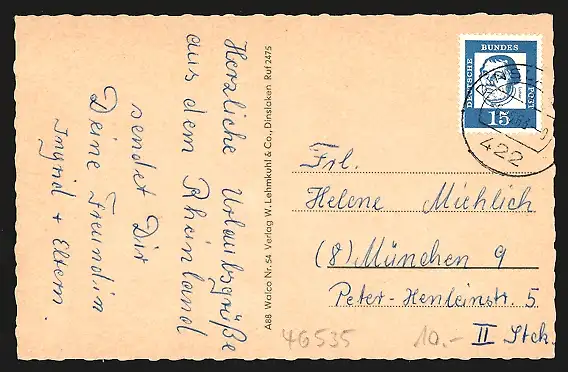 Herzliche Urlaubsgrüße
aus dem Rheinland
sendet Dir
Deine Freundin
Ingrid + Eltern.
A88 Walco Nr. 54 Verlag W. Lehmkuhl & Co., Dinslaken Ruf 2475
DEUTSCHE
BUNDES
POST
15
422
Frl.
Helene Michlich
(8) München 9
Peter-Henleinstr. 5
II Stck.
46535
10.-